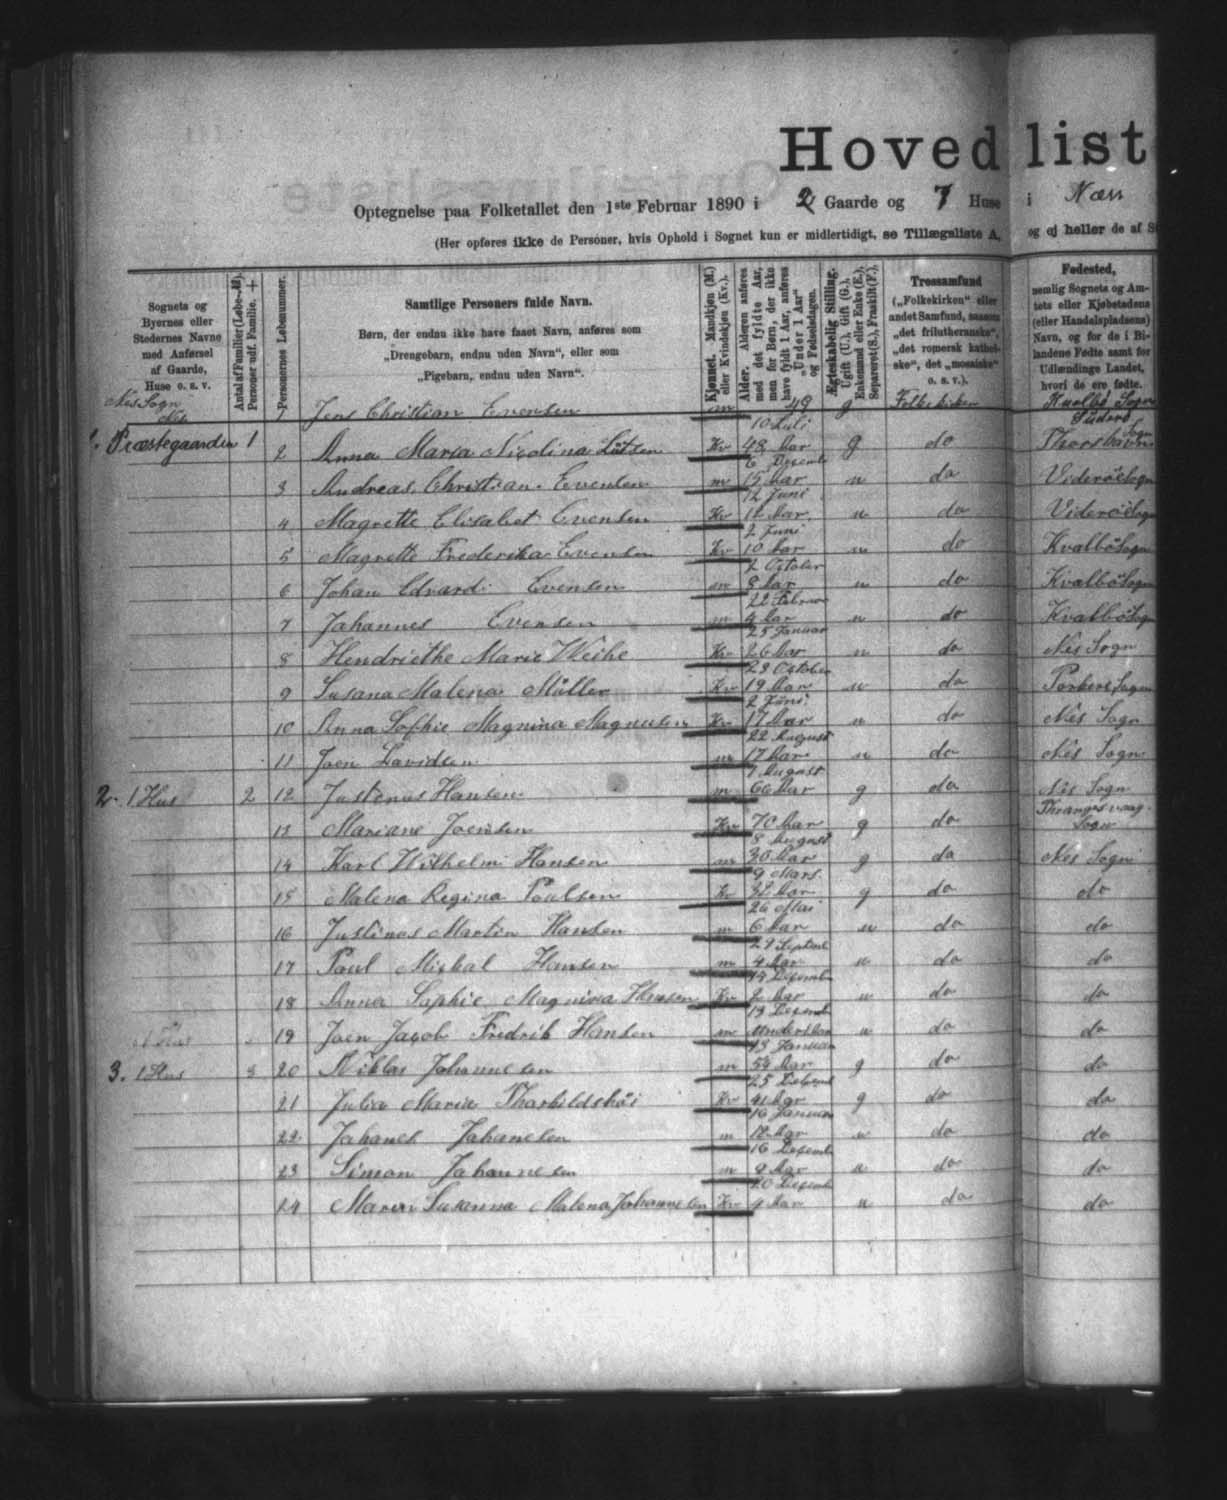 Hovedlist
Optegnelse paa Folketallet den 1ste Februar 1890 i 2 Gaarde og 7 Huse i Næss
(Her opføres ikke de Personer, hvis Ophold i Sognet kun er midlertidigt, se Tillægsliste A, og ej heller de af S
Sognets og Byernes eller Stedernes Navne med Anførsel af Gaarde, Huse o. s. v.
Antal af Familier (Løbe-№). Personer udf. Familie. +
Personernes Løbenummer.
Samtlige Personers fulde Navn.
Børn, der endnu ikke have faaet Navn, anføres som
„Drengebarn, endnu uden Navn“, eller som
„Pigebarn, endnu uden Navn“.
Kjønnet. Mandkjøn (M.) eller Kvindekjøn (Kv.).
Alder. Alderen anføres med det fyldte Aar, men for Børn, der ikke have fyldt 1 Aar, anføres „Under 1 Aar“ og Fødselsdagen.
Ægteskabelig Stilling. Ugift (U.), Gift (G.), Enkemand eller Enke (E.), Separeret (S.), Fraskilt (F.).
Trossamfund
(„Folkekirken“ eller andet Samfund, saasom „det frilutheranske“, „det romersk katholske“, det „mosaiske“ o. s. v.).
Fødested,
nemlig Sognets og Amtets eller Kjøbstadens (eller Handelspladsens) Navn, og for de i Bilandene Fødte samt for Udlændinge Landet, hvori de ere fødte.
Nes Sogn
Nes
1 Jens Christian Evensen m 49 g Folkekirken Kvalbø Sogn
Suderø
1. Præstegaarden 1 2 Anna Maria Nicolina Lützen Kv 10 Juli 48 Aar g do Thorshavn Sogn
3 Andreas Christian Evensen m 6 Decemb 15 Aar u do Viderøe Sogn
4 Magrette Elisabet Evensen Kv 12 Juni Aar u do Viderøe Sogn
5 Magrette Frederika Evensen Kv 2 Juni 10 Aar u do Kvalbø Sogn
6 Johan Edvard Evensen m 2 October 8 Aar u do Kvalbø Sogn
7 Johannes Evensen m 22 Februar 4 Aar u do Kvalbø Sogn
8 Hendriethe Marie Weihe Kv 25 Januar 26 Aar u do Nes Sogn
9 Susana Malena Müller Kv 29 October 19 Aar u do Porkeri Sogn
10 Anna Sophie Magnina Magnusen Kv 2 Juni 17 Aar u do Nes Sogn
11 Joen Davidsen m 22 August 17 Aar u do Nes Sogn
2. 1 Hus 2 12 Justinus Hansen m 1 August 66 Aar g do Nes Sogn
13 Mariane Joensen Kv 70 Aar g do Thrangisvaag Sogn
14 Karl Wilhelm Hansen m 8 August 30 Aar g do Nes Sogn
15 Malena Regina Poulsen Kv 9 Mars Aar g do do
16 Justinus Martin Hansen m 26 Mai 6 Aar u do do
17 Poul Mickal Hansen m 29 Septemb 4 Aar u do do
18 Anna Sophie Magnina Hansen Kv 14 Decemb 2 Aar u do do
1 Hus 19 Joen Jacob Fredrik Hansen m 13 Decemb under 1 Aar u do do
3. 1 Hus 3 20 Niklas Johannesen m 13 Januar 54 Aar g do do
21 Julia Maria Tharkildshøi Kv 25 Decemb 41 Aar g do do
22 Johanes Johanesen m 16 Januar 12 Aar u do do
23 Simon Johannesen m 16 Decemb 9 Aar u do do
24 Maren Susanna Malena Johannesen Kv 20 Decemb 4 Aar u do do